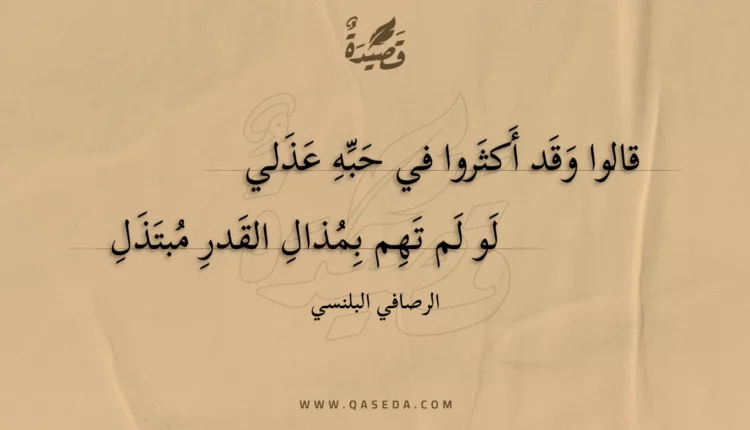 قَصِيْدَةٌ
قالوا وَقَد أَكثَروا في حَبِّهِ عَذَلي
لَو لَم تَهِم بِمُذالِ القَدرِ مُبتَذَلِ
الرصافي البلنسي
WWW.QASEDA.COM